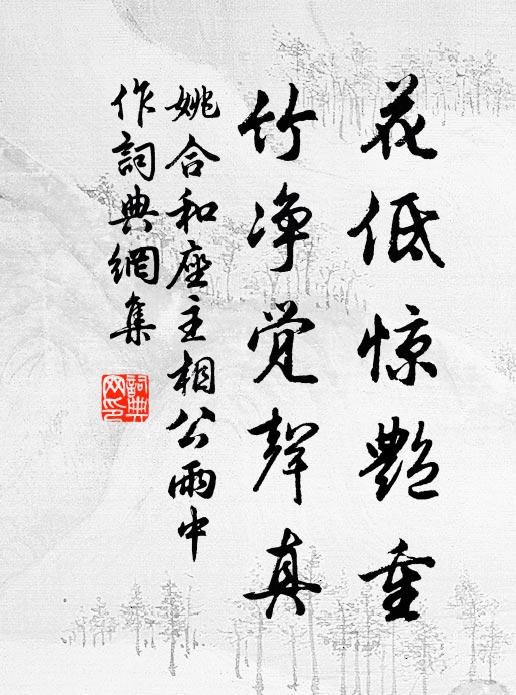 花低惊艳重
竹净觉聲真
姚合和座主相公雨中
作詞典網集
詞典網印